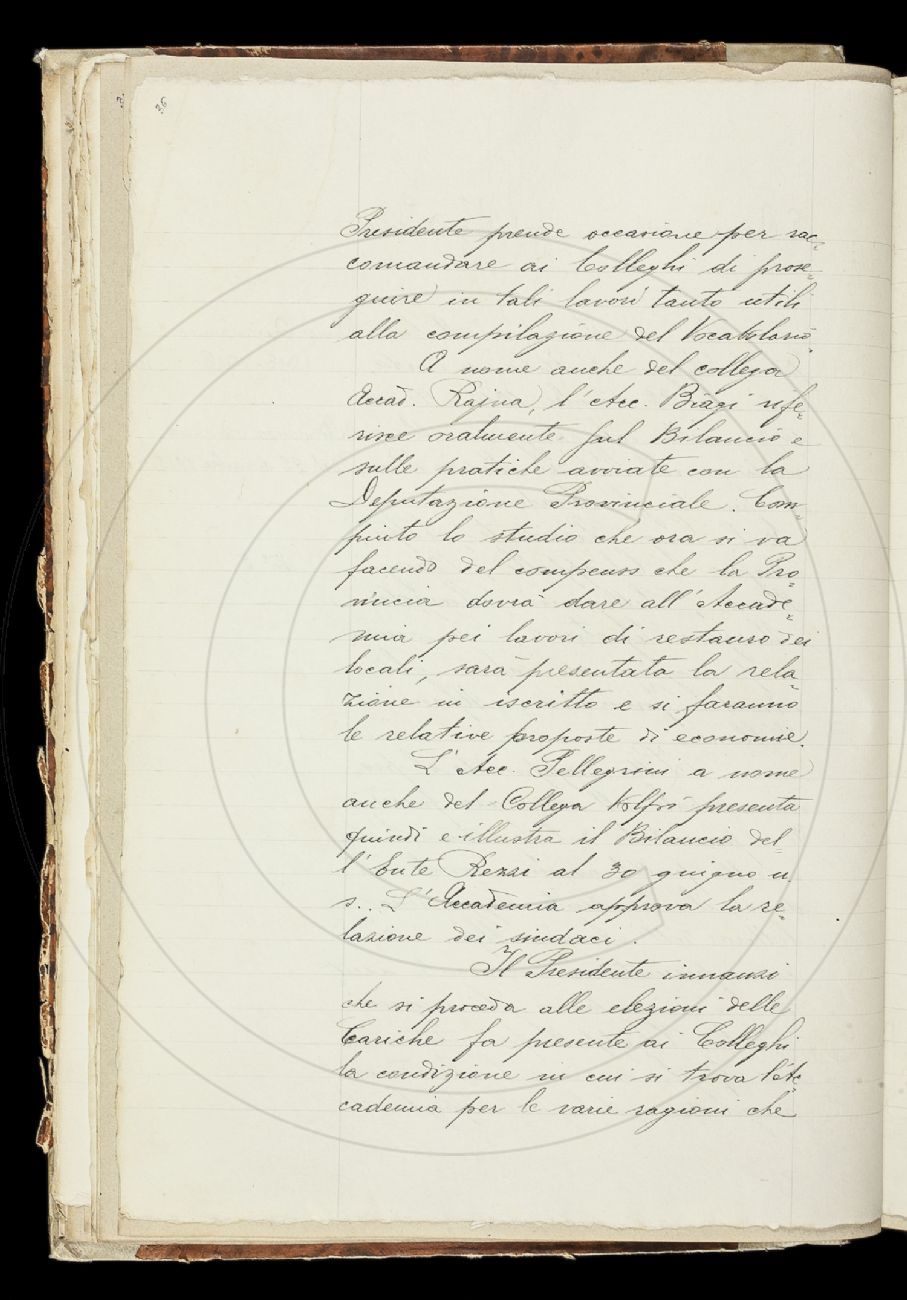 36
Presidente prende occasione per rac=
comandare ai Colleghi di prose=
guire in tali lavori tanto utili
alla compilazione del Vocabolario.
A nome anche del collega
Accad. Rajna, l'Acc. Biagi rife=
risce oralmente sul Bilancio e
sulle pratiche avviate con la
Deputazione Provinciale. Com=
piuto lo studio che ora si va
facendo del compenso che la Pro=
vincia dovrà dare all'Accade=
mia pei lavori di restauro dei
locali, sarà presentata la rela=
zione in iscritto e si faranno
le relative proposte di economie.
L'Acc. Pellegrini a nome
anche del Collega Volpi presenta
quindi e illustra il Bilancio del=
l'Ente Rezzi al 30 giugno u.
s.. L'Accademia approva la re=
lazione dei sindaci.
Il Presidente innanzi
che si proceda alle elezioni delle
Cariche fa presente ai Colleghi
la condizione in cui si trova l'Ac=
cademia per le varie ragioni che